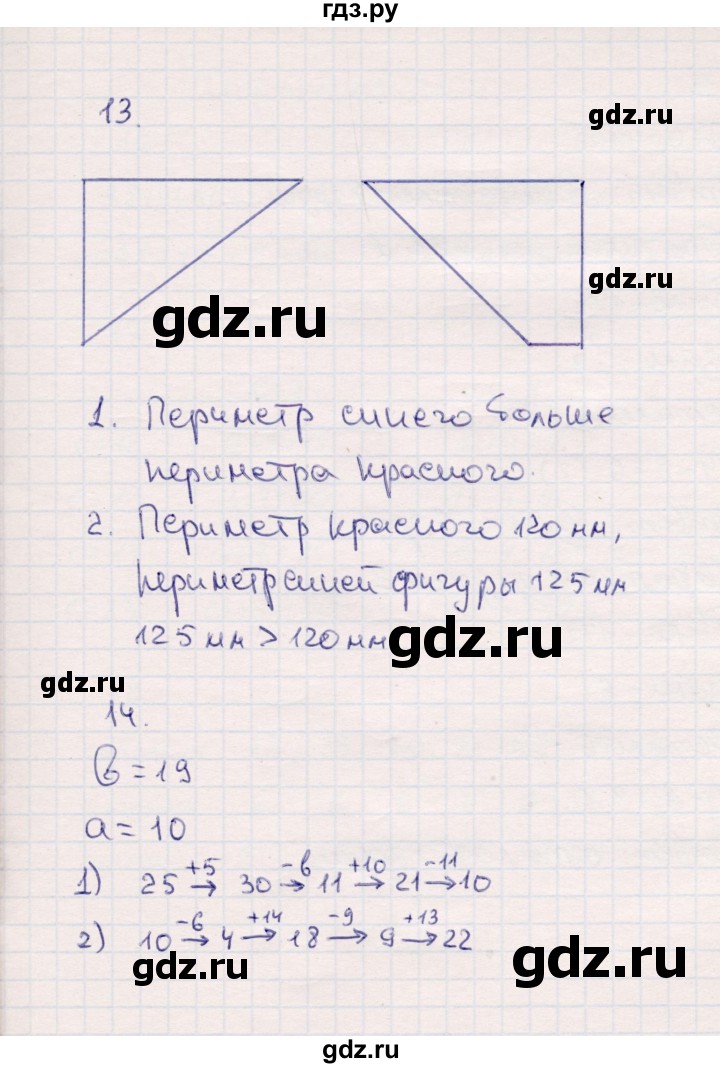 гдз.ру
13.
gdz.ru
gdz.ru
gdz.ru
1. Периметр синего больше
периметра красного.
2. Периметр красного 120 мм,
периметр синей фигуры 125 мм
125 мм > 120 мм
gdz.ru
gdz.ru
14.
в = 19
а = 10
1) 25 +5→ 30 -в→ 11 +10→ 21 -11→ 10
2) 10 -6→ 4 +14→ 18 -9→ 9 +13→ 22
gdz.ru
gdz.ru
gdz.ru